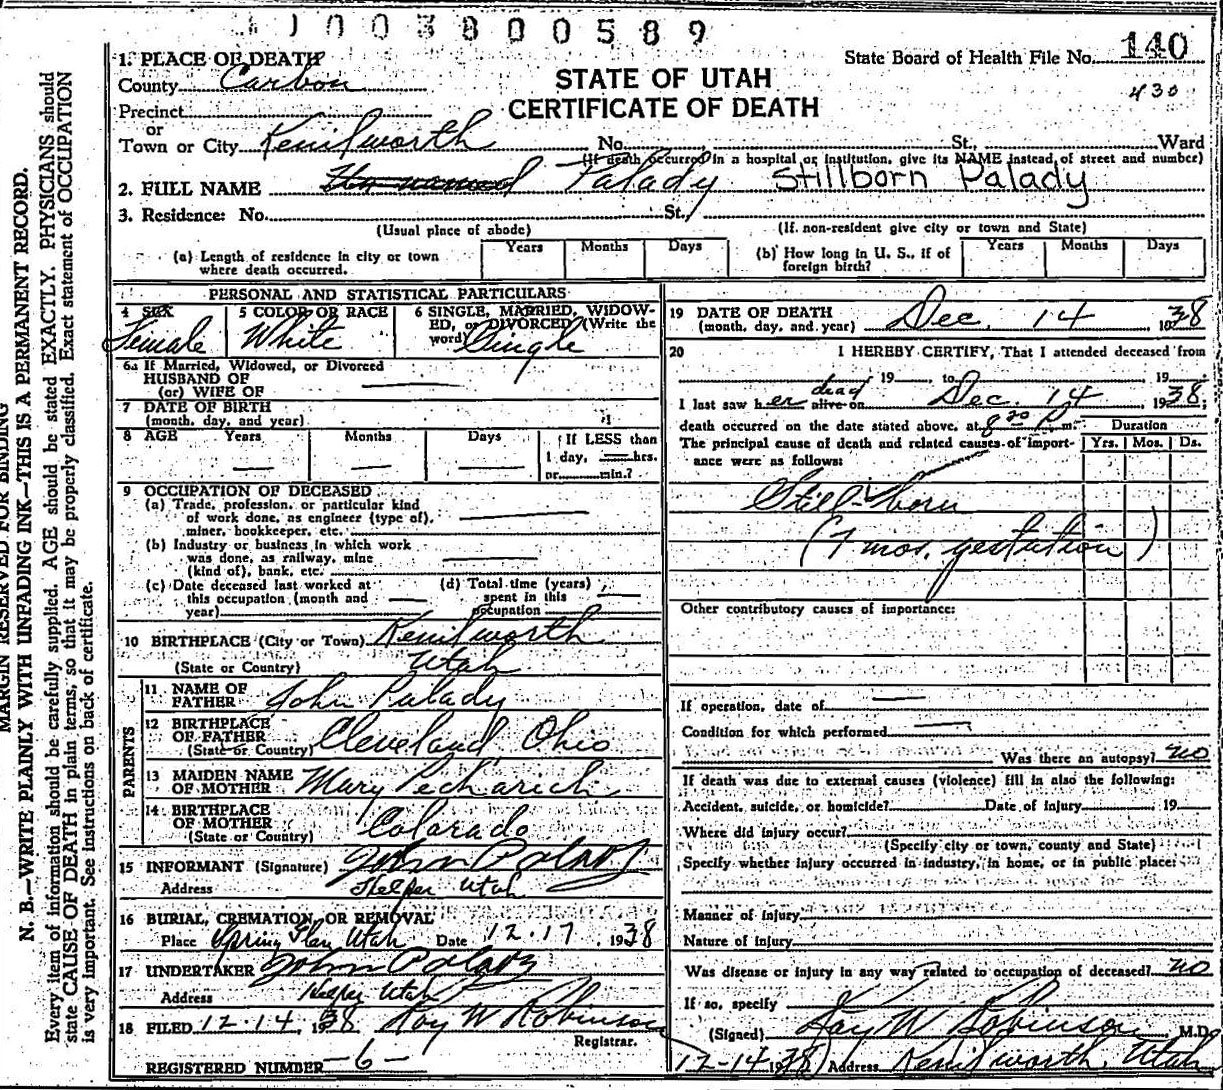 1003800589
State Board of Health File No. 140
430
STATE OF UTAH
CERTIFICATE OF DEATH
1. PLACE OF DEATH
County Carbon
Precinct
or
Town or City Kenilworth No. St., Ward
(If death occurred in a hospital or institution, give its NAME instead of street and number)
2. FULL NAME Un-named Palady Stillborn Palady
3. Residence: No. St.,
(Usual place of abode) (If non-resident give city or town and State)
(a) Length of residence in city or town where death occurred. Years Months Days
(b) How long in U. S., if of foreign birth? Years Months Days
PERSONAL AND STATISTICAL PARTICULARS
4 SEX 5 COLOR OR RACE 6 SINGLE, MARRIED, WIDOW-
ED, or DIVORCED (Write the
word)
Female White Single
6a If Married, Widowed, or Divorced
HUSBAND OF
(or) WIFE OF
7 DATE OF BIRTH
(month, day, and year)
8 AGE Years Months Days If LESS than
1 day, hrs.
or min.?
9 OCCUPATION OF DECEASED
(a) Trade, profession, or particular kind
of work done, as engineer (type of),
miner, bookkeeper, etc.
(b) Industry or business in which work
was done, as railway, mine
(kind of), bank, etc.
(c) Date deceased last worked at
this occupation (month and
year)
(d) Total time (years)
spent in this
occupation
10 BIRTHPLACE (City or Town) Kenilworth
(State or Country) Utah
PARENTS
11 NAME OF
FATHER John Palady
12 BIRTHPLACE
OF FATHER
(State or Country) Cleveland, Ohio
13 MAIDEN NAME
OF MOTHER Mary Pecharich
14 BIRTHPLACE
OF MOTHER
(State or Country) Colorado
15 INFORMANT (Signature) John Palady
Address Helper Utah
16 BURIAL, CREMATION, OR REMOVAL
Place Spring Glen, Utah Date 12-17, 1938
17 UNDERTAKER John Palady
Address Helper Utah
18 FILED 12-14, 1938 Roy W Robinson
Registrar.
REGISTERED NUMBER -6-
19 DATE OF DEATH
(month, day, and year) Dec. 14 1938
20 I HEREBY CERTIFY, That I attended deceased from
19 , to 19
I last saw her alive on dead Dec. 14 1938;
death occurred on the date stated above, at 8 20 P m.
The principal cause of death and related causes of import-
ance were as follows:
Duration
Yrs. Mos. Ds.
Still-born
(7 mos. gestation)
Other contributory causes of importance:
If operation, date of
Condition for which performed
Was there an autopsy? no
If death was due to external causes (violence) fill in also the following:
Accident, suicide, or homicide? Date of injury 19
Where did injury occur?
(Specify city or town, county and State)
Specify whether injury occurred in industry, in home, or in public place:
Manner of injury
Nature of injury
Was disease or injury in any way related to occupation of deceased? no
If so, specify
(Signed) Roy W Robinson M.D.
12-14 1938 Address Kenilworth, Utah
MARGIN RESERVED FOR BINDING
N. B.—WRITE PLAINLY WITH UNFADING INK—THIS IS A PERMANENT RECORD.
Every item of information should be carefully supplied. AGE should be stated EXACTLY. PHYSICIANS should
state CAUSE OF DEATH in plain terms, so that it may be properly classified. Exact statement of OCCUPATION
is very important. See instructions on back of certificate.